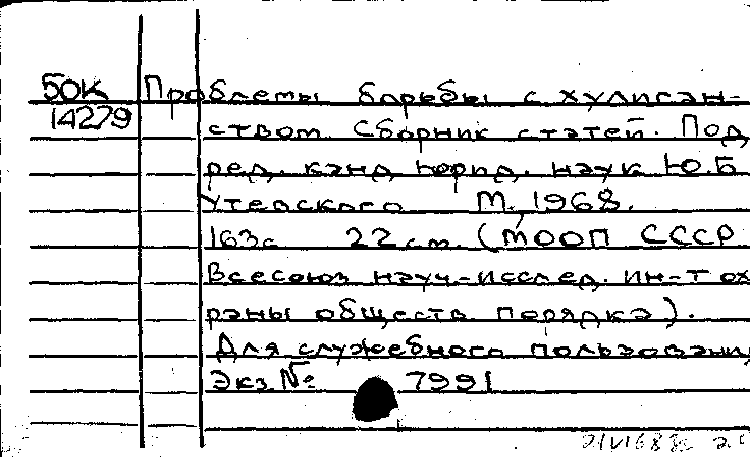 50К Проблемы борьбы с хулиган-
14279 ством. Сборник статей. Под
ред. канд. юрид. наук Ю.Б
Утевского М., 1968.
163с 22 см. (МООП СССР
Всесоюз науч.-исслед. ин-т ох
раны обществ порядка).
Для служебного пользовани
Экз № 7991